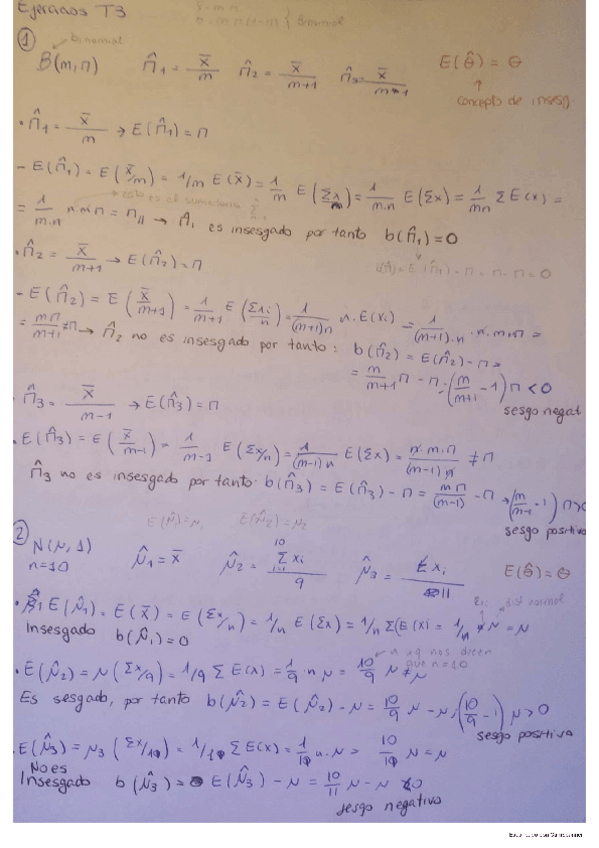 Ejercicios T3
① binomial
B(m,π) π̂₁ = x̄/m π̂₂ = x̄/(m+1) π̂₃ = x̄/(m-1) E(θ̂) = θ
concepto de insesg.
• π̂₁ = x̄/m → E(π̂₁) = π
- E(π̂₁) = E(x̄/m) = 1/m E(x̄) = 1/m E(Σx/n) = 1/(m·n) E(Σx) = 1/(mn) Σ E(x) =
esto es el sumatorio
= 1/(m·n) n m π = π // → π̂₁ es insesgado por tanto b(π̂₁) = 0
• π̂₂ = x̄/(m+1) → E(π̂₂) = π b(π̂₁) = E(π̂₁) - π = π - π = 0
- E(π̂₂) = E(x̄/(m+1)) = 1/(m+1) E(Σxi/n) = 1/((m+1)n) n·E(xi) = 1/((m+1)·n) · n · m·π =
= mπ/(m+1) ≠ π → π̂₂ no es insesgado por tanto: b(π̂₂) = E(π̂₂) - π =
= m/(m+1) π - π = (m/(m+1) - 1) π < 0
sesgo negat
• π̂₃ = x̄/(m-1) → E(π̂₃) = π
• E(π̂₃) = E(x̄/(m-1)) = 1/(m-1) E(Σx/n) = 1/((m-1)n) E(Σx) = n·m·π/((m-1)n) ≠ π
π̂₃ no es insesgado por tanto: b(π̂₃) = E(π̂₃) - π = mπ/(m-1) - π → (m/(m-1) - 1) π > 0
sesgo positivo
E(μ̂₁) = μ, E(μ̂₂) = μ₂
② N(μ, 1)
n = 10 μ̂₁ = x̄ μ̂₂ = Σxi/9 μ̂₃ = Σxi/11 E(θ̂) = θ
• E(μ̂₁) = E(x̄) = E(Σx/n) = 1/n E(Σx) = 1/n Σ(E(xi = 1/n n μ = μ
dist normal
Insesgado b(μ̂₁) = 0
n xq nos dicen
que n=10
• E(μ̂₂) = μ (Σx/9) = 1/9 Σ E(x) = 1/9 · n μ = 10/9 μ ≠ μ
Es sesgado, por tanto b(μ̂₂) = E(μ̂₂) - μ = 10/9 μ - μ; (10/9 - 1) μ > 0
sesgo positivo
• E(μ̂₃) = μ₃ (Σx/10) = 1/10 Σ E(x) = 1/10 n·μ = 10/10 μ = μ
No es
Insesgado b(μ̂₃) = E(μ̂₃) - μ = 10/11 μ - μ < 0
sesgo negativo